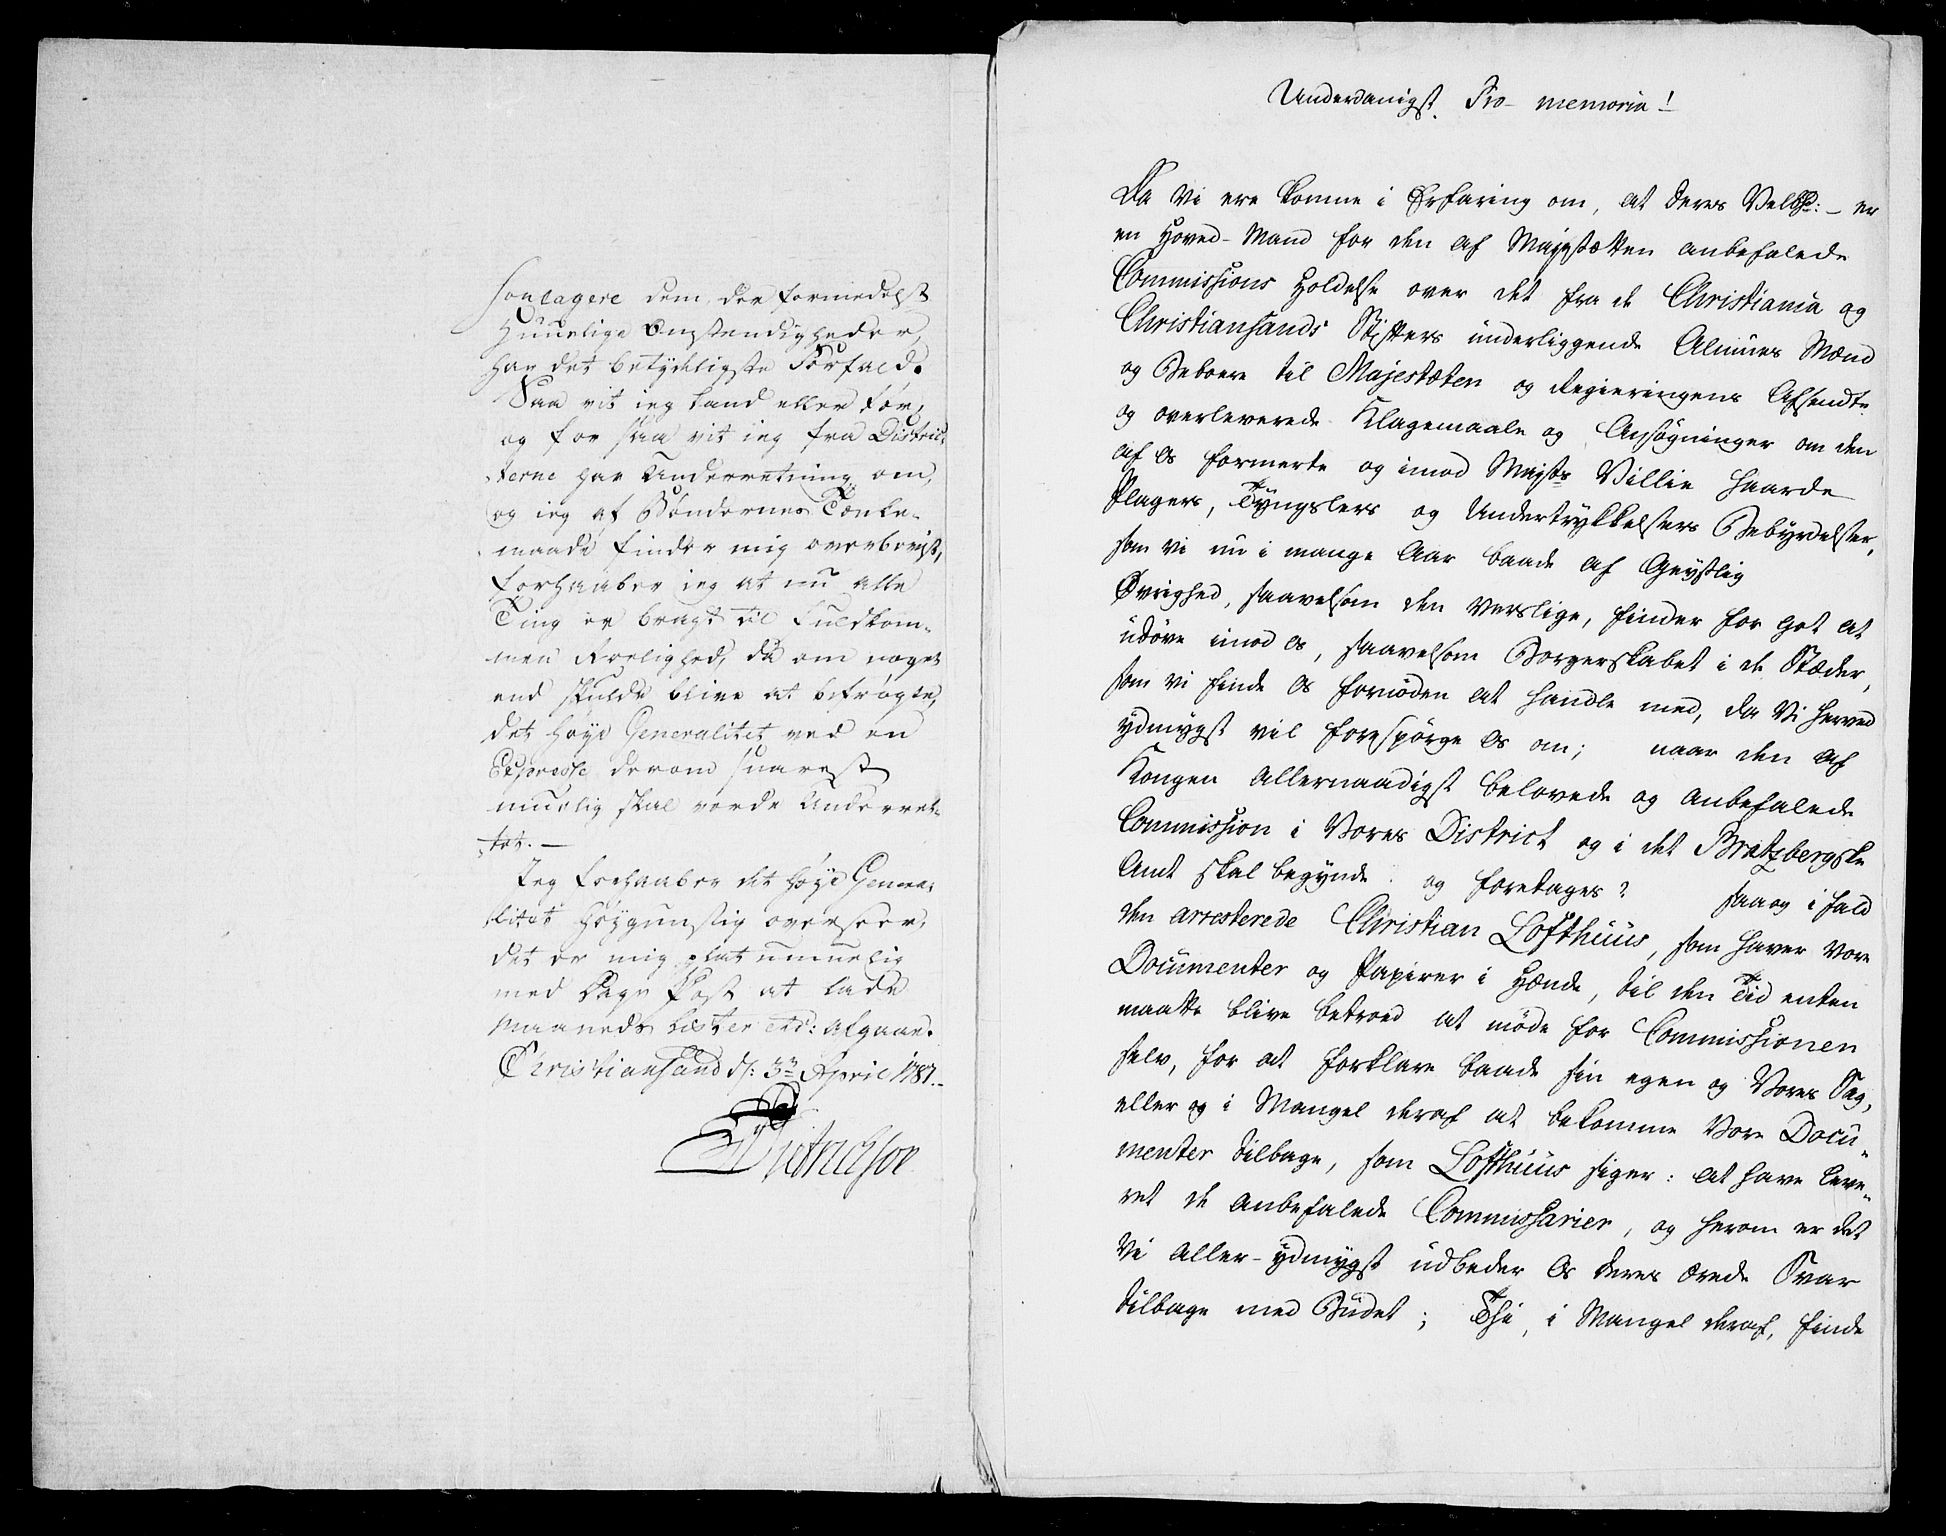 soulagere dem, der formedelst
Huuslige Omstendigheder,
har det betydeligste Forfald.
Saa vit ieg kand eller tør,
og for saa vit ieg fra Distric-
terne har Underretning om,
og ieg af Bøndernes Tænke-
maade finder mig overbevist,
forhaaber ieg at nu alle
Ting er bragt til Fuldkom-
men Roelighed, da om noget
end skulde blive at befrøgte,
det høye Generalitet ved en
Expresse derom snarest
muelig skal vorde Underret-
tet. —
Jeg forhaaber det høye Genera-
litet Høygunstig overseer,
det er mig plat umuelig
med Dags Post at lade
Maaneds Lister etc: afgaae.
Christiansand d: 3die April 1787.
Dietrichson

Underdanigst Pro memoria!
Da Vi ere komne i Erfaring om, at deres Velbhd: – er
en Hoved-Mand for den af Majestætten anbefalede
Commissions Holdelse over det fra de Christiania og
Christiansands Stifters underliggende Almues Mænd
og Beboere til Majestæten og Regieringens Afsendte
og overleverede Klagemaale og Ansøgninger om den
af Os formerte og imod Majsts Villie haarde
Plagers, Tyngslers og Undertrykkelsers Bebyrdelser,
som vi nu i mange Aar baade af Geystlig
Øvrighed, saavelsom den Verslige, finder for got at
udøve imod Os, saavelsom Borgerskabet i de Stæder,
som vi finde Os fornøden at handle med, da Vi herved
ydmygst vil forespørge Os om; naar den af
Kongen Allernaadigst belovede og anbefalede
Commission i Vores District og i det Bratzbergske
Amt skal begynde og foretages? saa og i fald
den arresterede Christian Lofthuus, som haver Vore
Documenter og Papirer i Hænde, til den Tid enten
maatte blive betroed at møde for Commissionen
selv, for at forklare baade sin egen og Vores Sag,
eller og i Mangel deraf at bekomme Vore Docu-
menter tilbage, som Lofthuus siger: at have leve-
ret de anbefalede Commissarier, og herom er det
Vi aller-ydmygst udbeder Os deres ærede Svar
tilbage med Budet; Thi, i Mangel deraf, finde